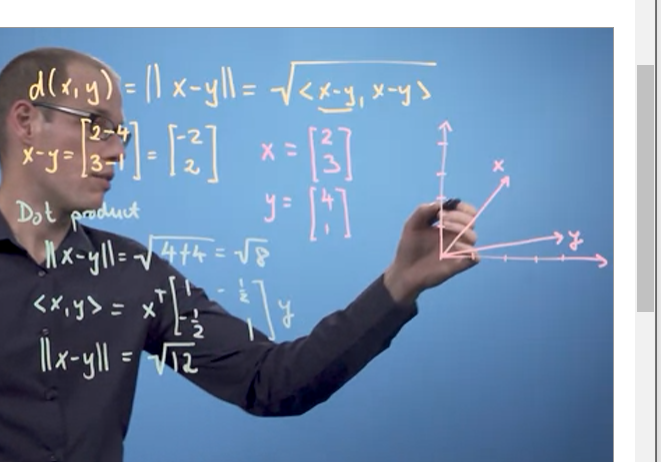 d(x,y) = ||x-y|| = √<x-y, x-y>
x-y = [2-4 3-1] = [-2 2]
x = [2 3]
y = [4 1]
x
y
Dot product
||x-y|| = √4+4 = √8
<x,y> = xᵀ[1 -½ -½ 1]y
||x-y|| = √12